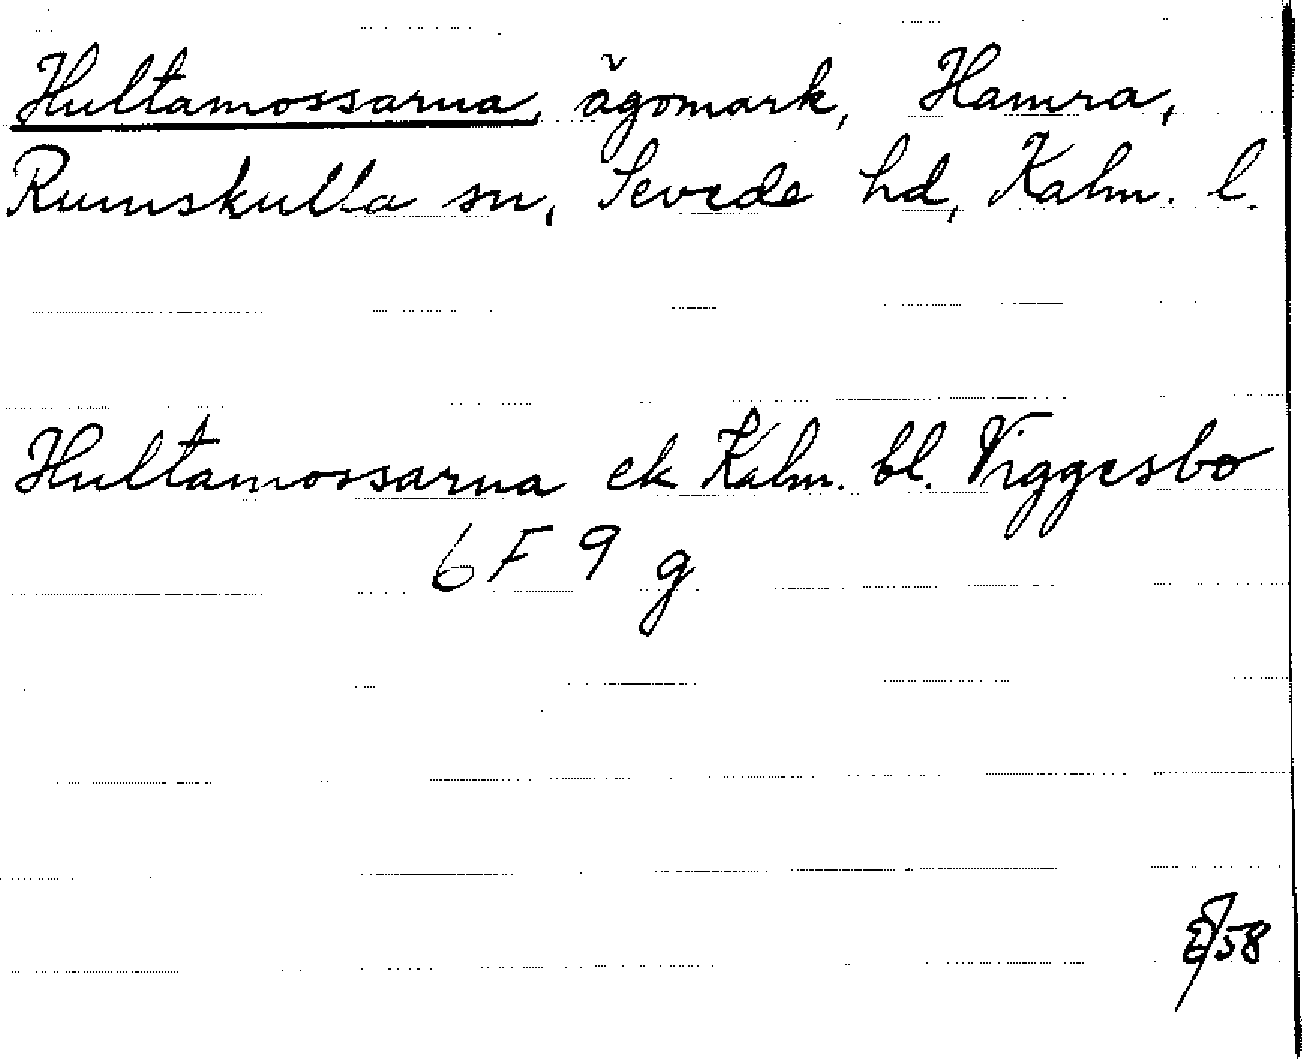 Hultamossarna, ägomark, Hamra,
Rumskulla sn, Sevede hd, Kalm. l.
Hultamossarna ek Kalm. bl. Viggesbo
6 F 9 g
58